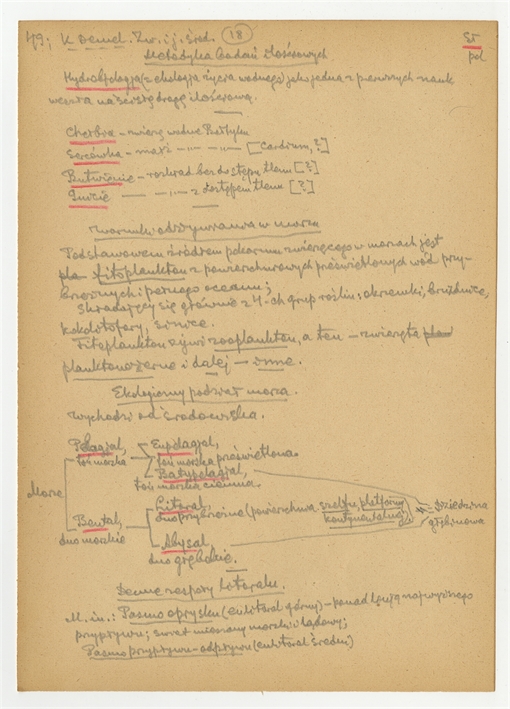 49; K. Demel. Zw. i j. śred. 18 St
pol
Metodyka badań ilościowych
Hydrobiologja (z ekologią życia wodnego) jako jedna z pierwszych nauk
weszła na ścisłą drogę ilościową.
Chełbia – zwierz. wodne Bałtyku
Sercówka – małż –"– –"– [Cardium, ?]
Butwienie – rozkład bez dostępu tlenu [?]
Gnicie — –"– z dostępem tlenu [?]
Warunki odżywiania w morzu
Podstawowem źródłem pokarmu zwierzęcego w morzach jest
fitoplankton z powierzchniowych prześwietlonych wód przy-
brzeżnych i pełnego oceanu;
składający się głównie z 4-ch grup roślin: okrzemki, bruzdnice,
kokolitofory, sinice.
Fitoplankton żywi zooplankton, a ten – zwierzęta
planktonożerne i dalej – inne.
Ekologiczny podział morza.
Wychodzi od środowiska.
Pelagjal, Eupelagjal,
toń morska toń morska prześwietlona.
Batypelagjal,
toń morska ciemna.
Morze
Litoral,
dno przybrzeżne (powierzchnia szelfu, platformy
kontynentalnej)
dziedzina
głębinowa
Bental,
dno morskie
Abysal,
dno głębokie.
Denne zespoły litoralu.
M. in.: Pasmo oprysku (eulitoral górny) – ponad linją najwyższego
przypływu; świat mieszany morski i lądowy;
Pasmo przypływu – odpływu (eulitoral średni)